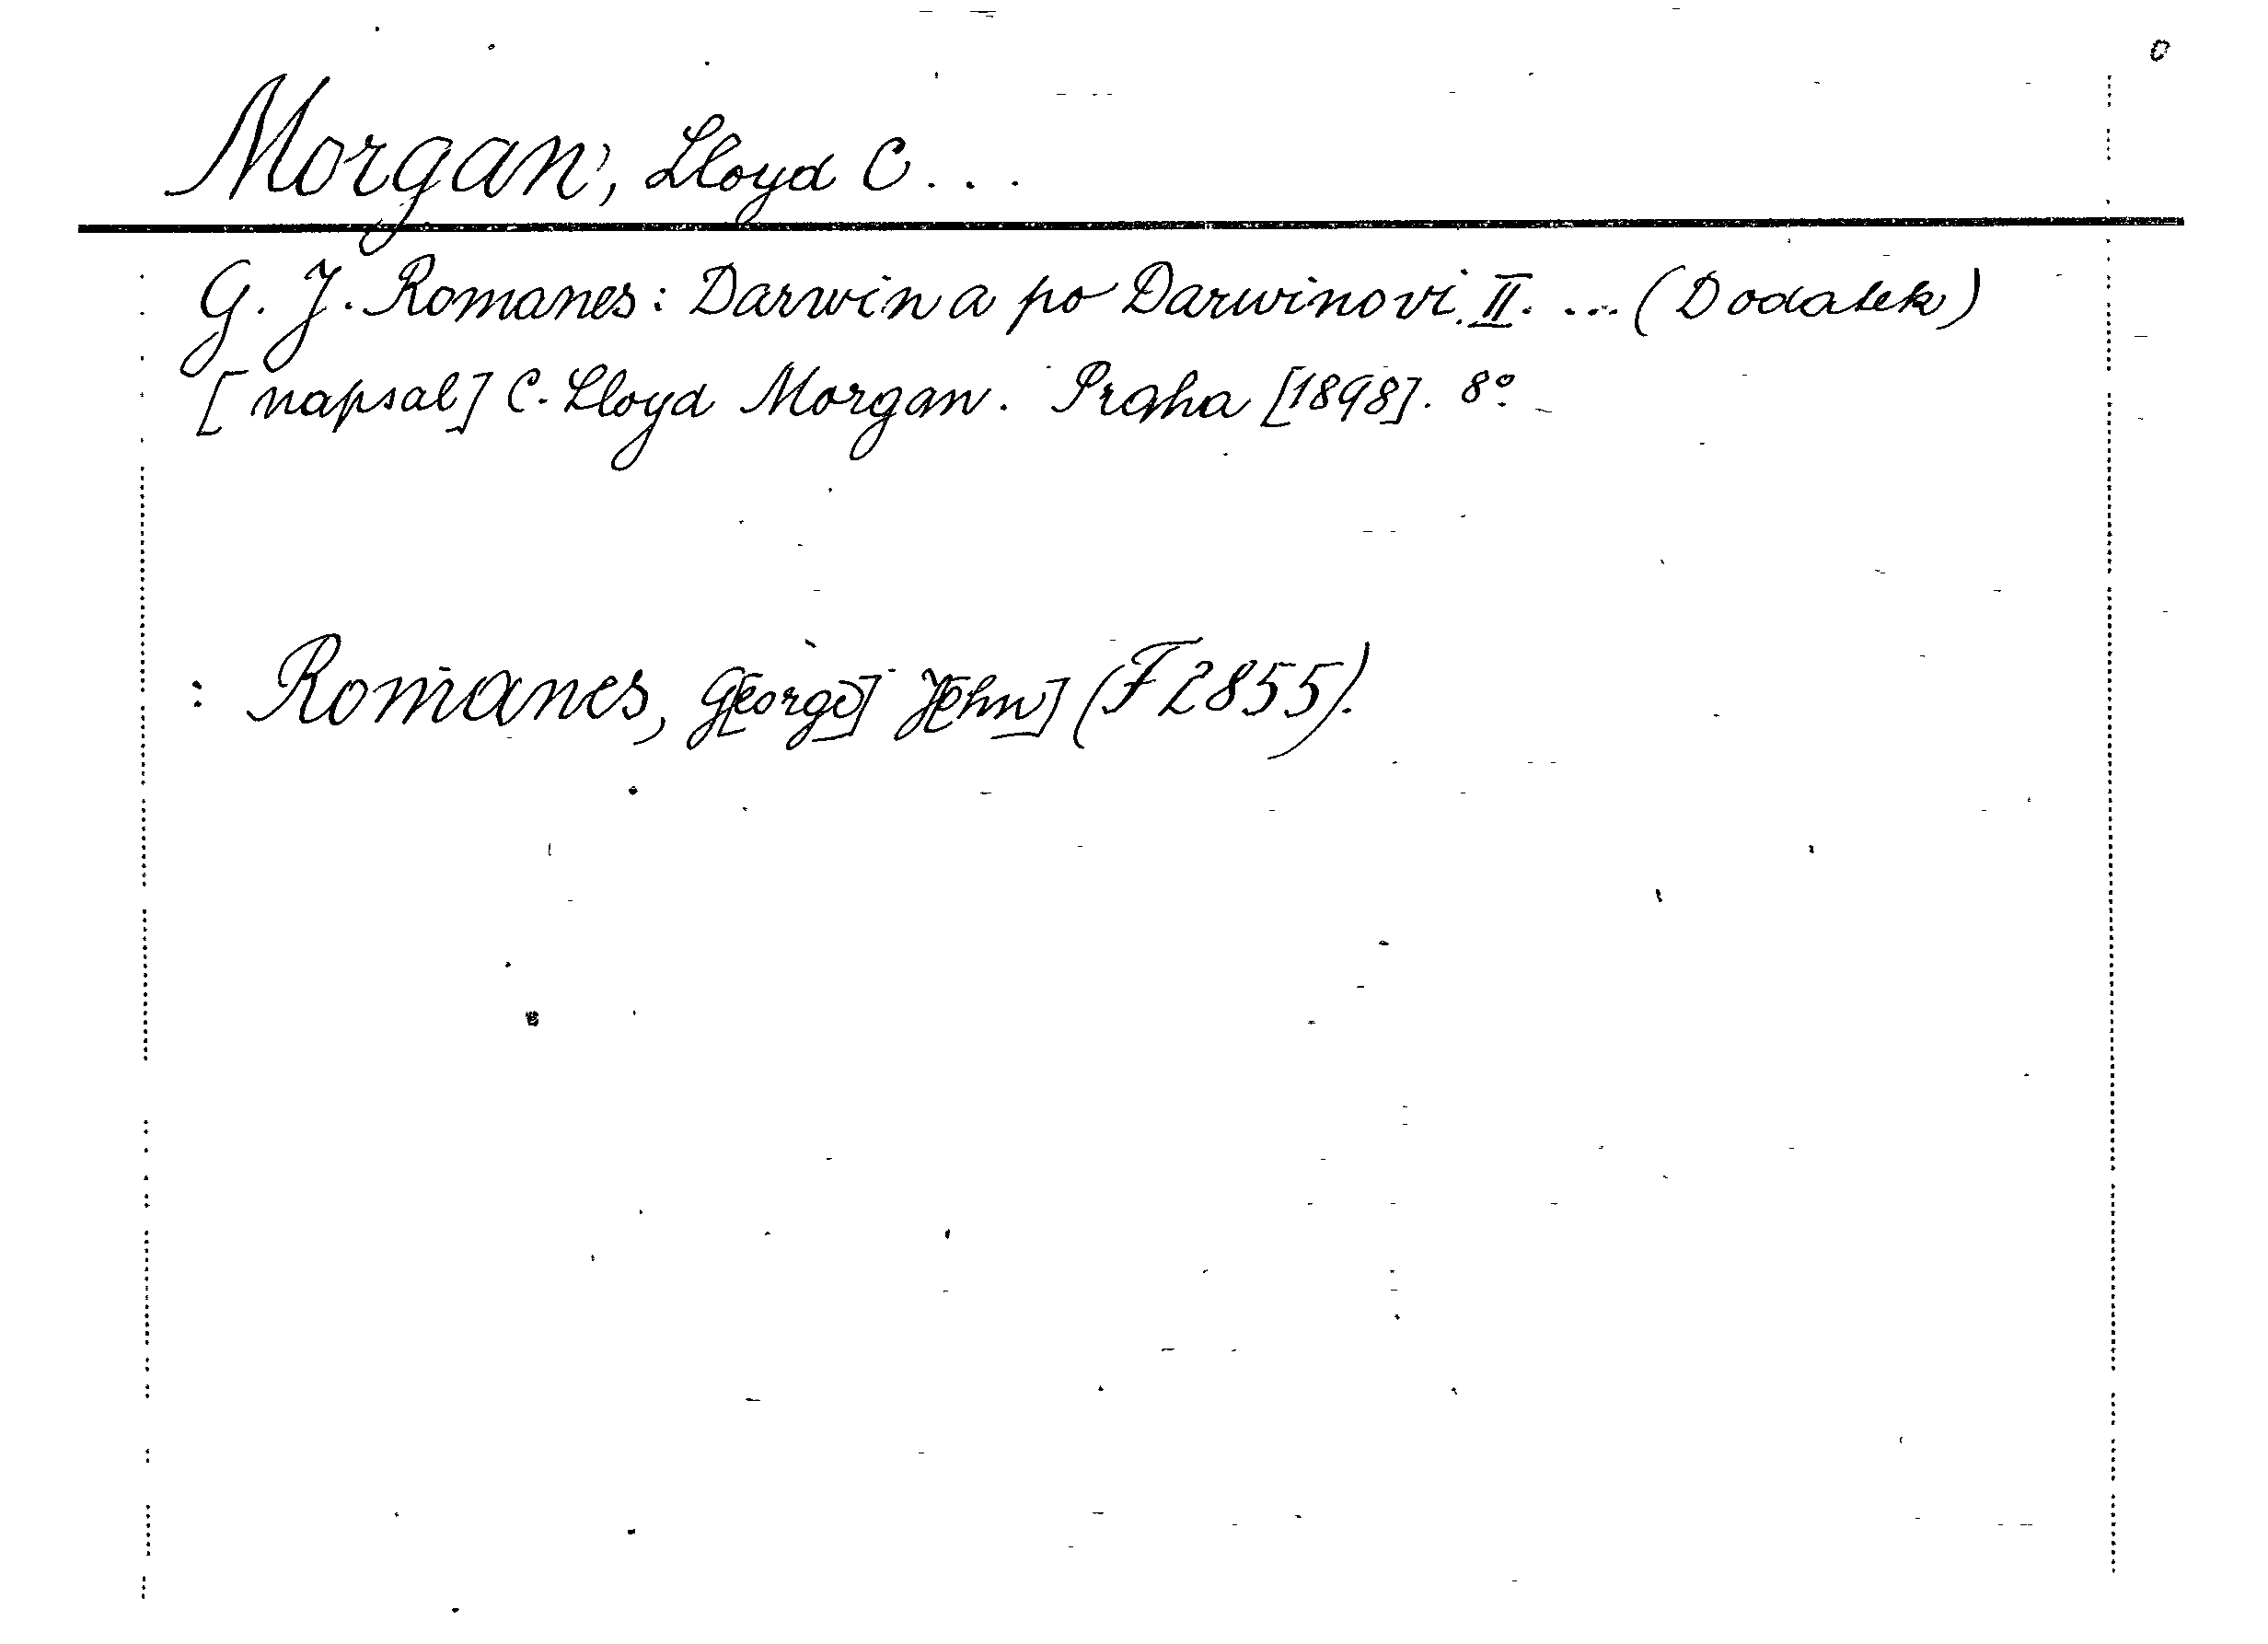 Morgan, Lloyd C...
G. J. Romanes: Darwin a po Darwinovi. II. ... (Dodatek)
[napsal] C. Lloyd Morgan. Praha [1898]. 8°.
: Romanes, G[eorge] J[ohn] (F 2855).